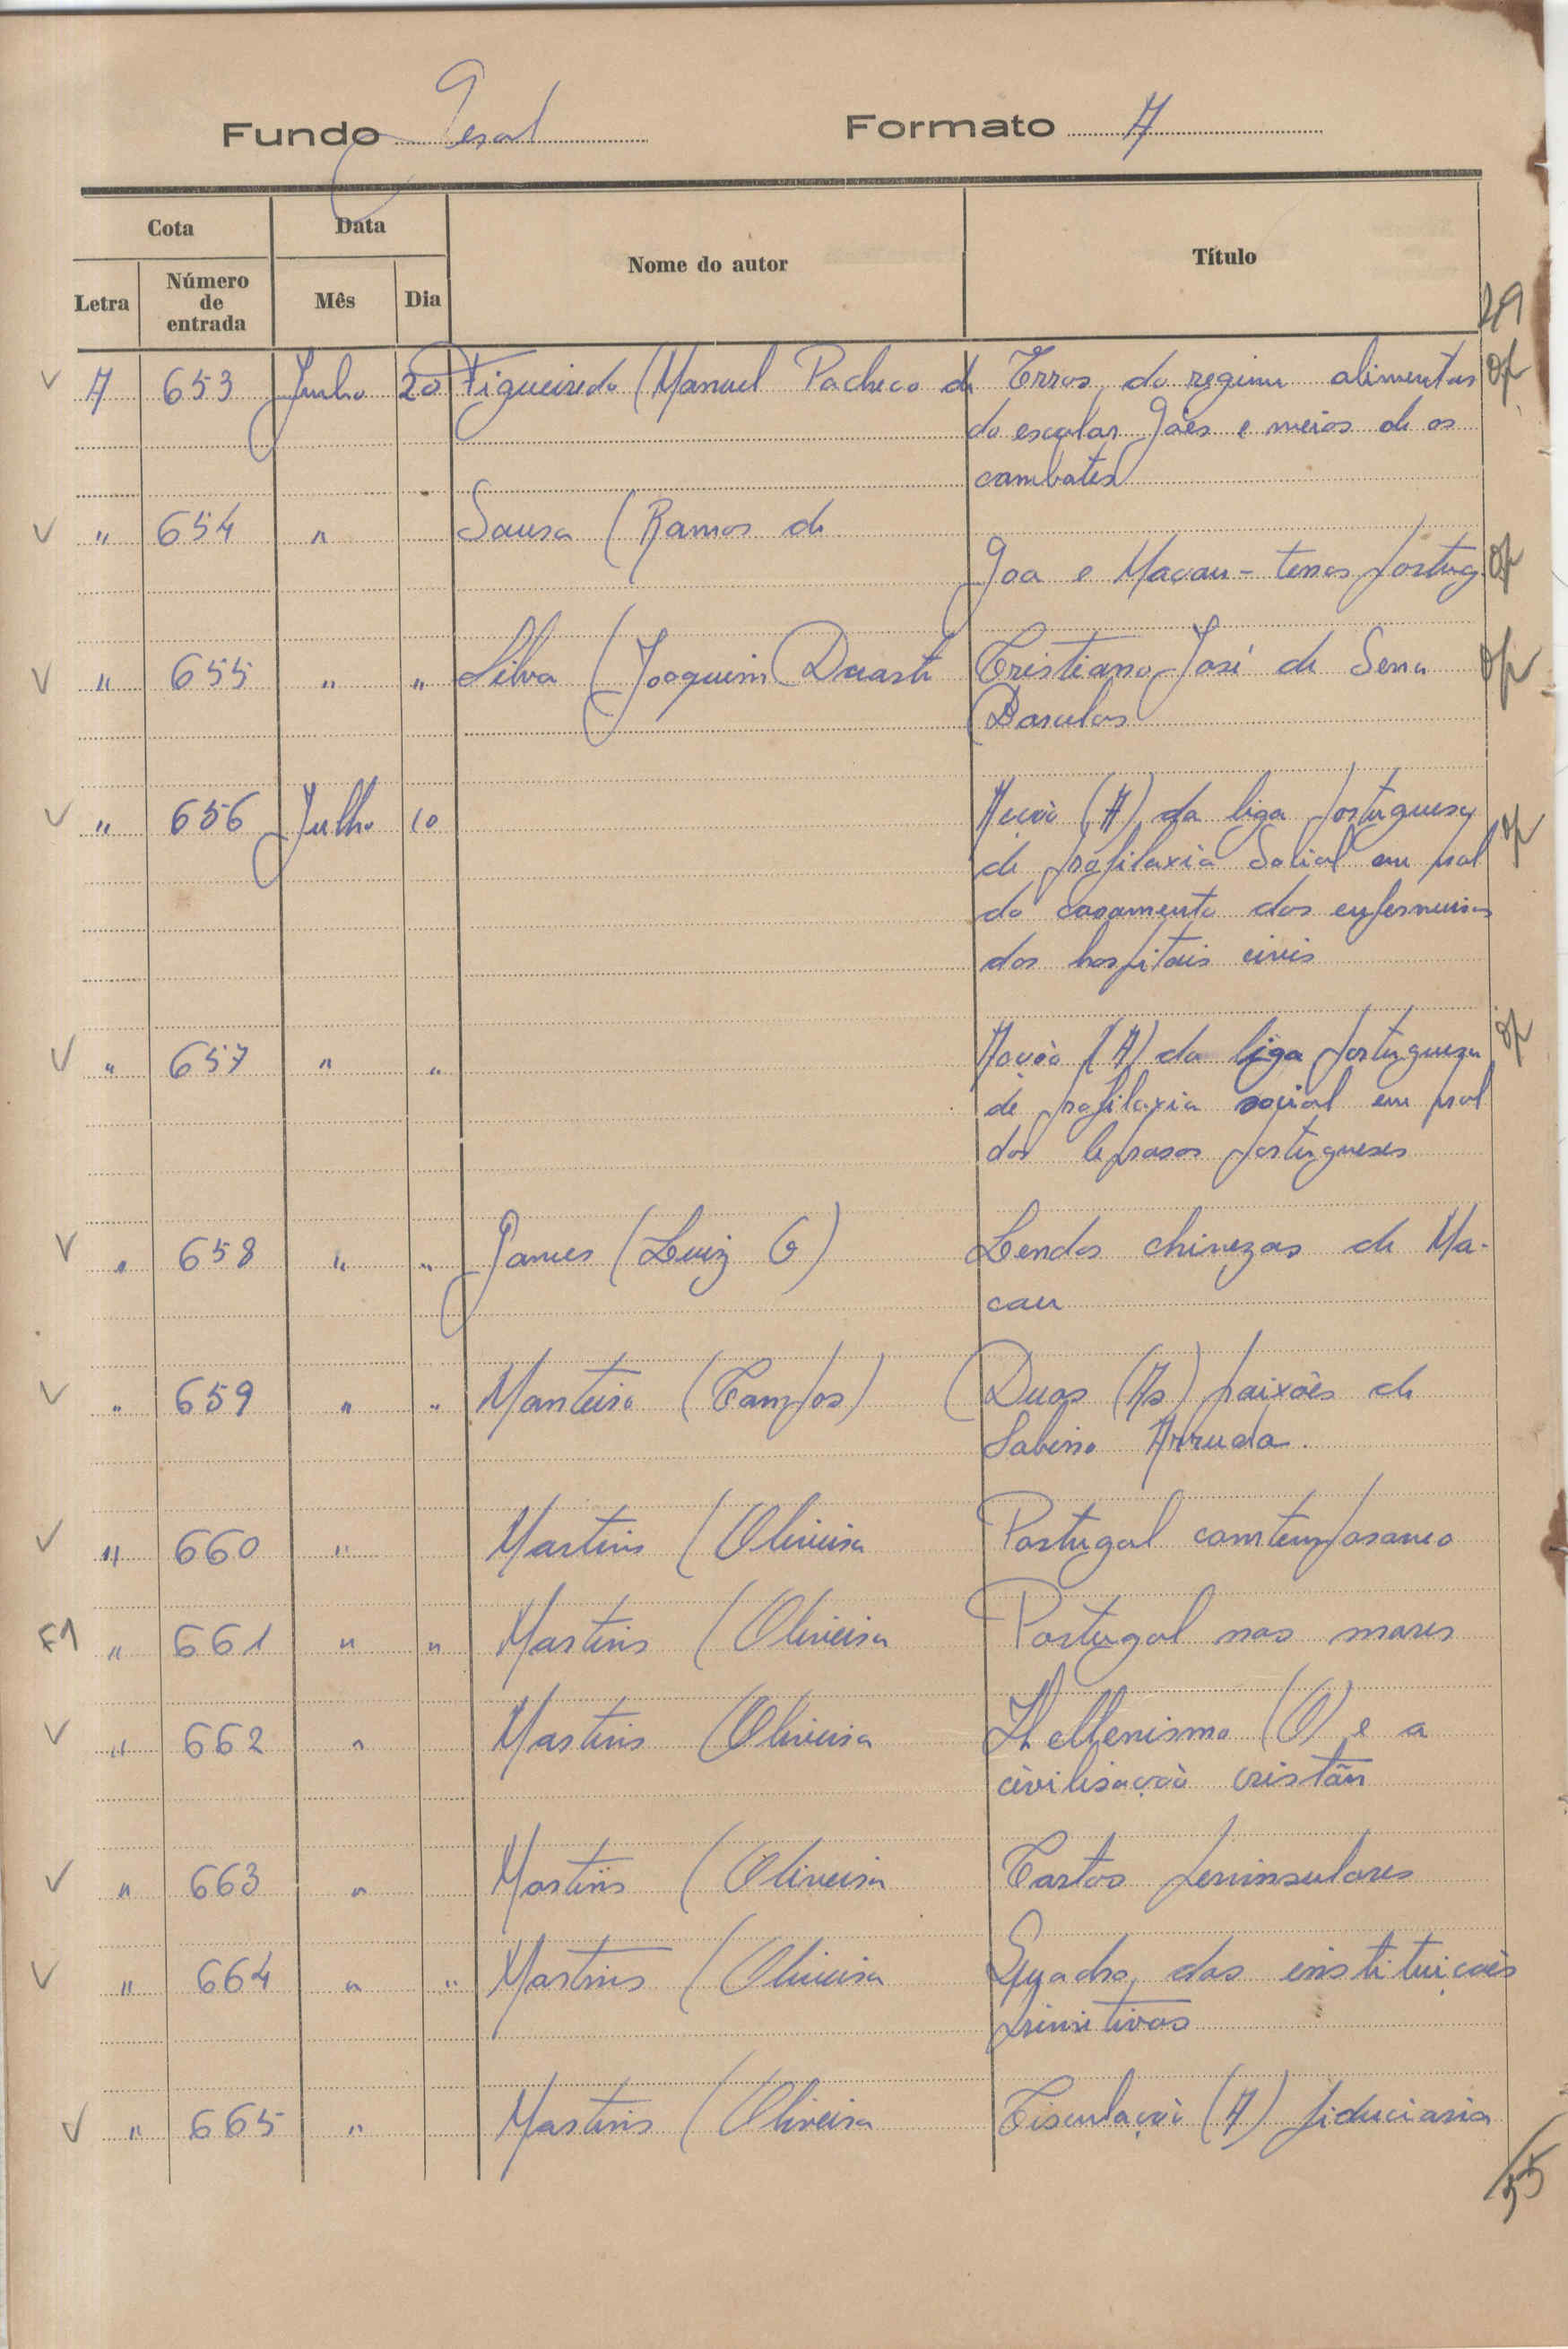 Fundo Geral Formato A
Cota Data Nome do autor Título
Letra Número de entrada Mês Dia
29
V A 653 Junho 20 Figueiredo (Manuel Pacheco de Erros do regime alimentar op
do escolar Goês e meios de os
combater
V " 654 " Sousa (Ramos de
Goa e Macau - terras portug. op
V " 655 " " Silva (Joaquim Duarte Cristiano José de Sena op
Barcelos
V " 656 Julho 10 Acção (A) da liga portuguesa op
de profilaxia Social em prol
do casamento das enfermeiras
dos hospitais civis
V " 657 " " Acção (A) da liga portuguesa op
de profilaxia social em prol
dos leprosos portugueses
V " 658 " " Gomes (Luiz G) Lendas chinezas de Ma-
cau
V " 659 " " Monteiro (Campos) Duas (As) paixões de
Sabino Arruda.
V " 660 " Martins (Oliveira Portugal comtemporaneo
F1 " 661 " " Martins (Oliveira Portugal nos mares
V " 662 " Martins (Oliveira Hellenismo (O) e a
civilisação cristãn
V " 663 " Martins (Oliveira Cartas peninsulares
V " 664 " " Martins (Oliveira Quadro das instituições
primitivas
V " 665 " Martins (Oliveira Circulação (A) fiduciaria